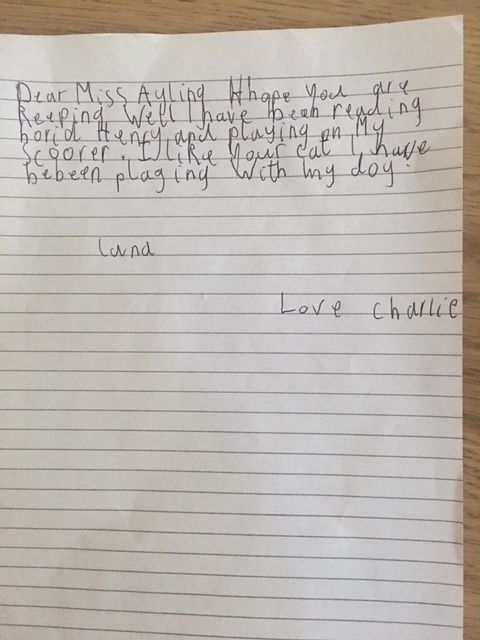 Dear Miss Ayling I hope you are
keeping well I have been reading
horid Henry and playing on My
scoorer. I like Your cat I have
bebeen plaging with my dog.
Luna
Love charlie